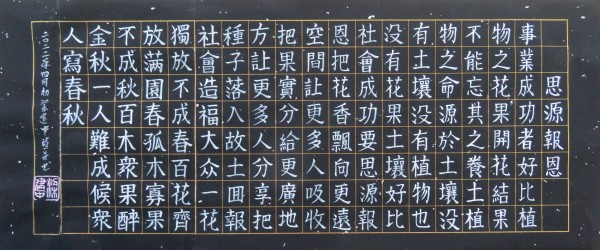 思源報恩
事業成功者好比植
物之成果開花結果
不能忘其之養土植
物之命源於土壤沒
有土壤沒有植物也
沒有花果土壤好比
社會成功要思源報
恩把花香飄向更遠
空間讓更多人吸收
把果實分給更廣地
方讓更多人分享把
種子落入故土囬報
社會造福大眾一花
獨放不成春百花齊
放滿園春孤木寡果
不成秋百木眾果醉
金秋一人難成候眾
人寫春秋
二〇二二年四月初